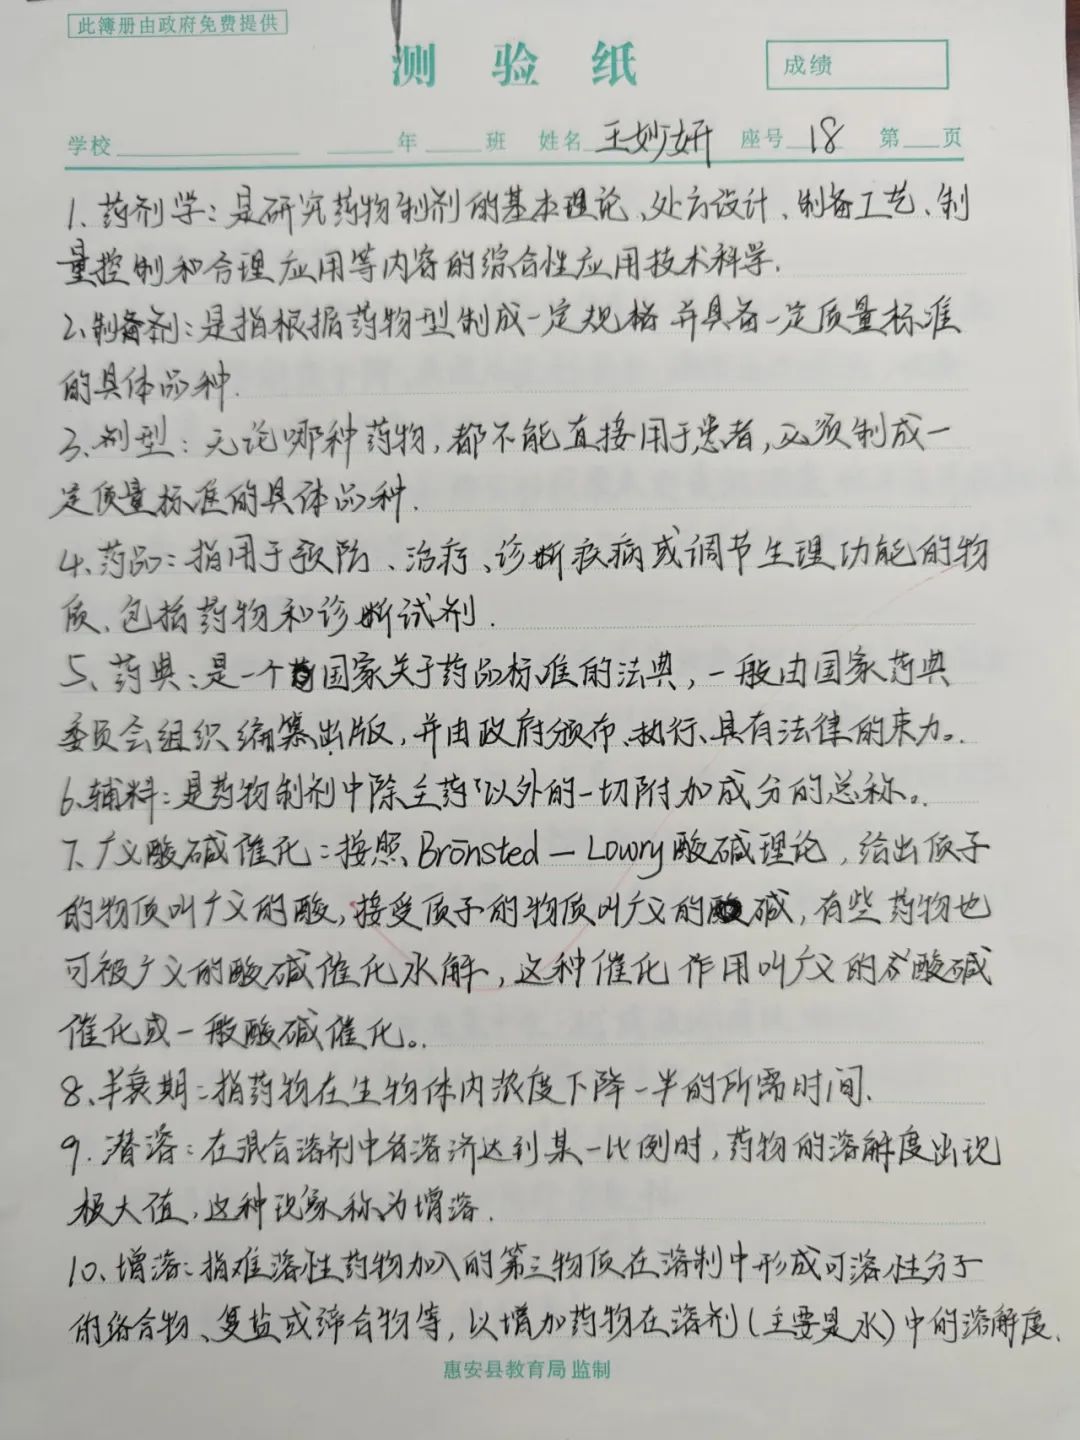 此簿册由政府免费提供
测验纸
成绩
学校 年 班 姓名 王妙妍 座号 18 第 页
1、药剂学：是研究药物制剂的基本理论、处方设计、制备工艺、制
量控制和合理应用等内容的综合性应用技术科学.
2、制备剂：是指根据药物型制成一定规格并具备一定质量标准
的具体品种.
3、剂型：无论哪种药物，都不能直接用于患者，必须制成一
定质量标准的具体品种.
4、药品：指用于预防、治疗、诊断疾病或调节生理功能的物
质、包括药物和诊断试剂.
5、药典：是一个国家关于药品标准的法典，一般由国家药典
委员会组织编纂出版，并由政府颁布、执行、具有法律的束力。
6、辅料：是药物制剂中除主药以外的一切附加成分的总称。
7、广义酸碱催化：按照Brōnsted－Lowry酸碱理论，给出质子
的物质叫广义的酸，接受质子的物质叫广义的碱，有些药物也
可被广义的酸碱催化水解，这种催化作用叫广义的酸碱
催化或一般酸碱催化。
8、半衰期：指药物在生物体内浓度下降一半的所需时间.
9、潜溶：在混合溶剂中各溶济达到某一比例时，药物的溶解度出现
极大值，这种现象称为增溶.
10、增溶：指难溶性药物加入的第三物质在溶制中形成可溶性分子
的络合物、复盐或缔合物等，以增加药物在溶剂（主要是水）中的溶解度.
惠安县教育局监制